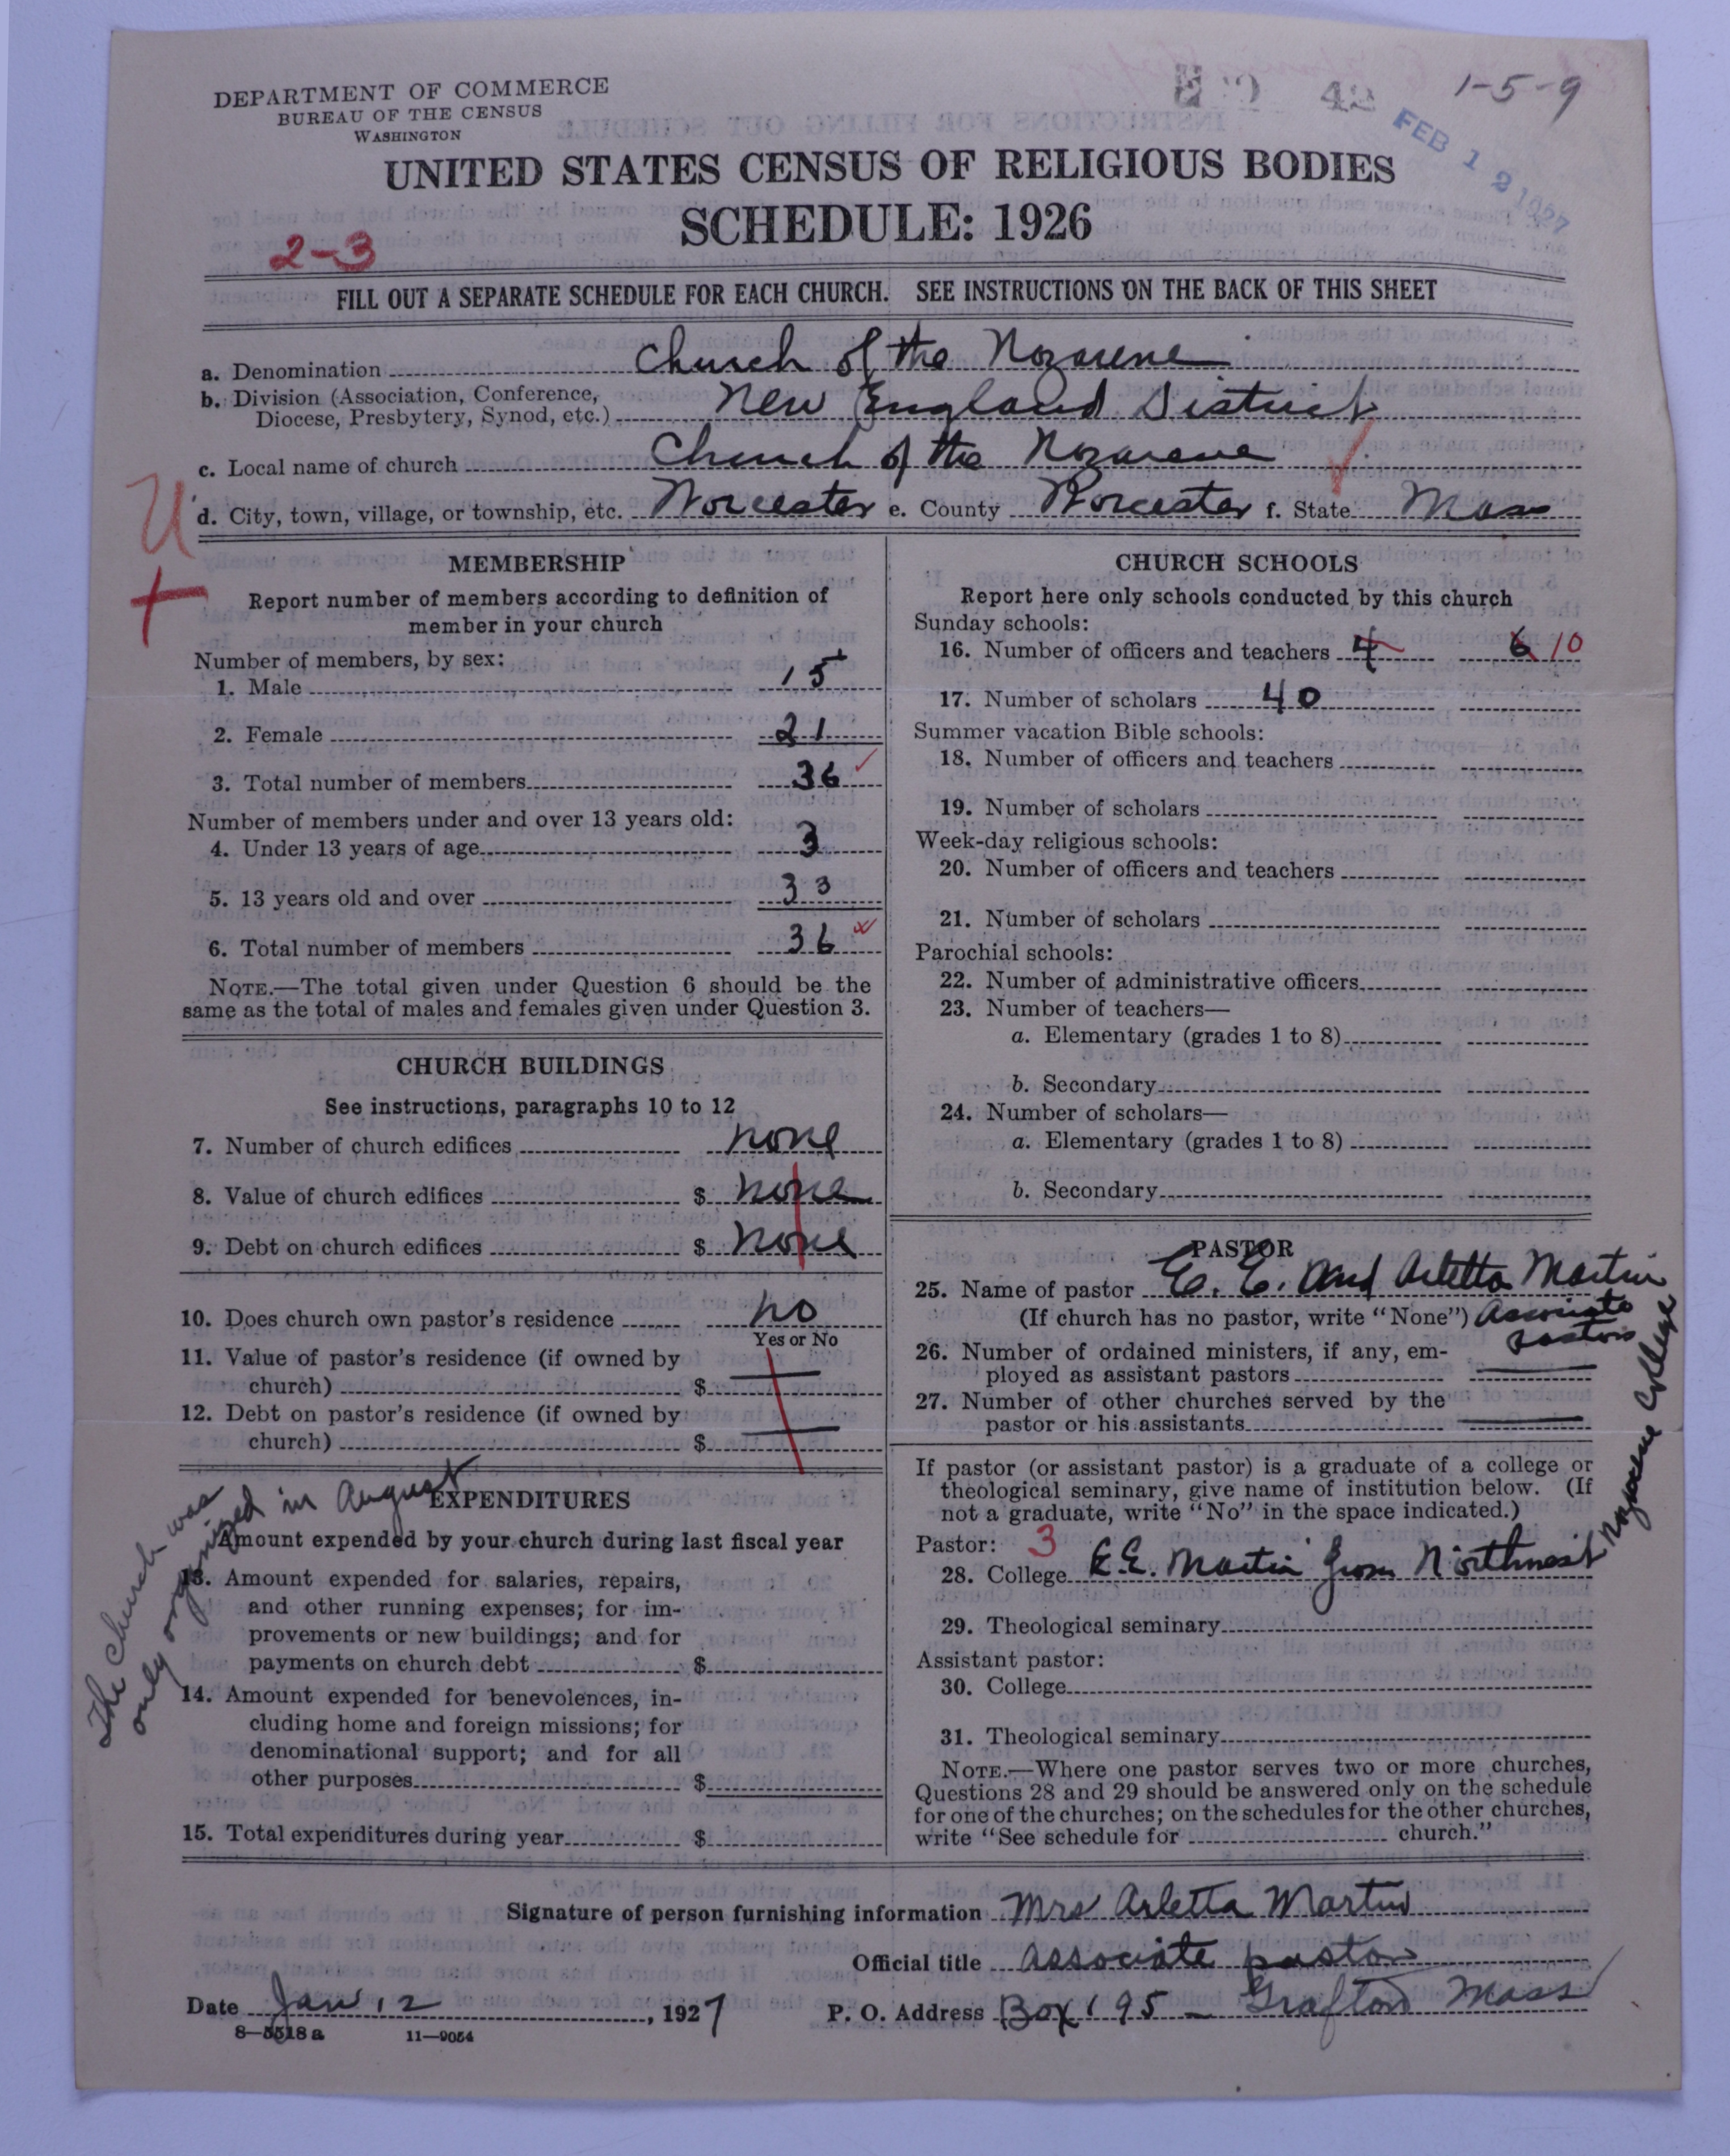 DEPARTMENT OF COMMERCE
BUREAU OF THE CENSUS
WASHINGTON
42
1-5-9
FEB 12 1927
UNITED STATES CENSUS OF RELIGIOUS BODIES
SCHEDULE: 1926
2-3
FILL OUT A SEPARATE SCHEDULE FOR EACH CHURCH. SEE INSTRUCTIONS ON THE BACK OF THIS SHEET
a. Denomination Church of the Nazarene
b. Division (Association, Conference,
Diocese, Presbytery, Synod, etc.) New England District
c. Local name of church Church of the Nazarene
d. City, town, village, or township, etc. Worcester e. County Worcester f. State Mass
U
+
MEMBERSHIP
Report number of members according to definition of
member in your church
Number of members, by sex:
1. Male 15
2. Female 21
3. Total number of members 36 ✓
Number of members under and over 13 years old:
4. Under 13 years of age 3
5. 13 years old and over 33
6. Total number of members 36
NOTE.—The total given under Question 6 should be the
same as the total of males and females given under Question 3.
CHURCH BUILDINGS
See instructions, paragraphs 10 to 12
7. Number of church edifices none
8. Value of church edifices $ none
9. Debt on church edifices $ none
10. Does church own pastor's residence no
Yes or No
11. Value of pastor's residence (if owned by
church) $
12. Debt on pastor's residence (if owned by
church) $
The church was
only organized in August
EXPENDITURES
Amount expended by your church during last fiscal year
13. Amount expended for salaries, repairs,
and other running expenses; for im-
provements or new buildings; and for
payments on church debt $
14. Amount expended for benevolences, in-
cluding home and foreign missions; for
denominational support; and for all
other purposes $
15. Total expenditures during year $
CHURCH SCHOOLS
Report here only schools conducted by this church
Sunday schools:
16. Number of officers and teachers 4 6 10
17. Number of scholars 40
Summer vacation Bible schools:
18. Number of officers and teachers
19. Number of scholars
Week-day religious schools:
20. Number of officers and teachers
21. Number of scholars
Parochial schools:
22. Number of administrative officers
23. Number of teachers—
a. Elementary (grades 1 to 8)
b. Secondary
24. Number of scholars—
a. Elementary (grades 1 to 8)
b. Secondary
PASTOR
25. Name of pastor E. E. and Arletta Martin
(If church has no pastor, write "None") Associate
pastors
26. Number of ordained ministers, if any, em-
ployed as assistant pastors
27. Number of other churches served by the
pastor or his assistants
If pastor (or assistant pastor) is a graduate of a college or
theological seminary, give name of institution below. (If
not a graduate, write "No" in the space indicated.)
Pastor: 3
28. College E.E. Martin from Northwest Nazarene College
29. Theological seminary
Assistant pastor:
30. College
31. Theological seminary
NOTE.—Where one pastor serves two or more churches,
Questions 28 and 29 should be answered only on the schedule
for one of the churches; on the schedules for the other churches,
write "See schedule for church."
Signature of person furnishing information Mrs Arletta Martin
Official title Associate pastor
Date Jan 12, 1927 P. O. Address Box 195 - Grafton Mass
8-5518 a 11-9054